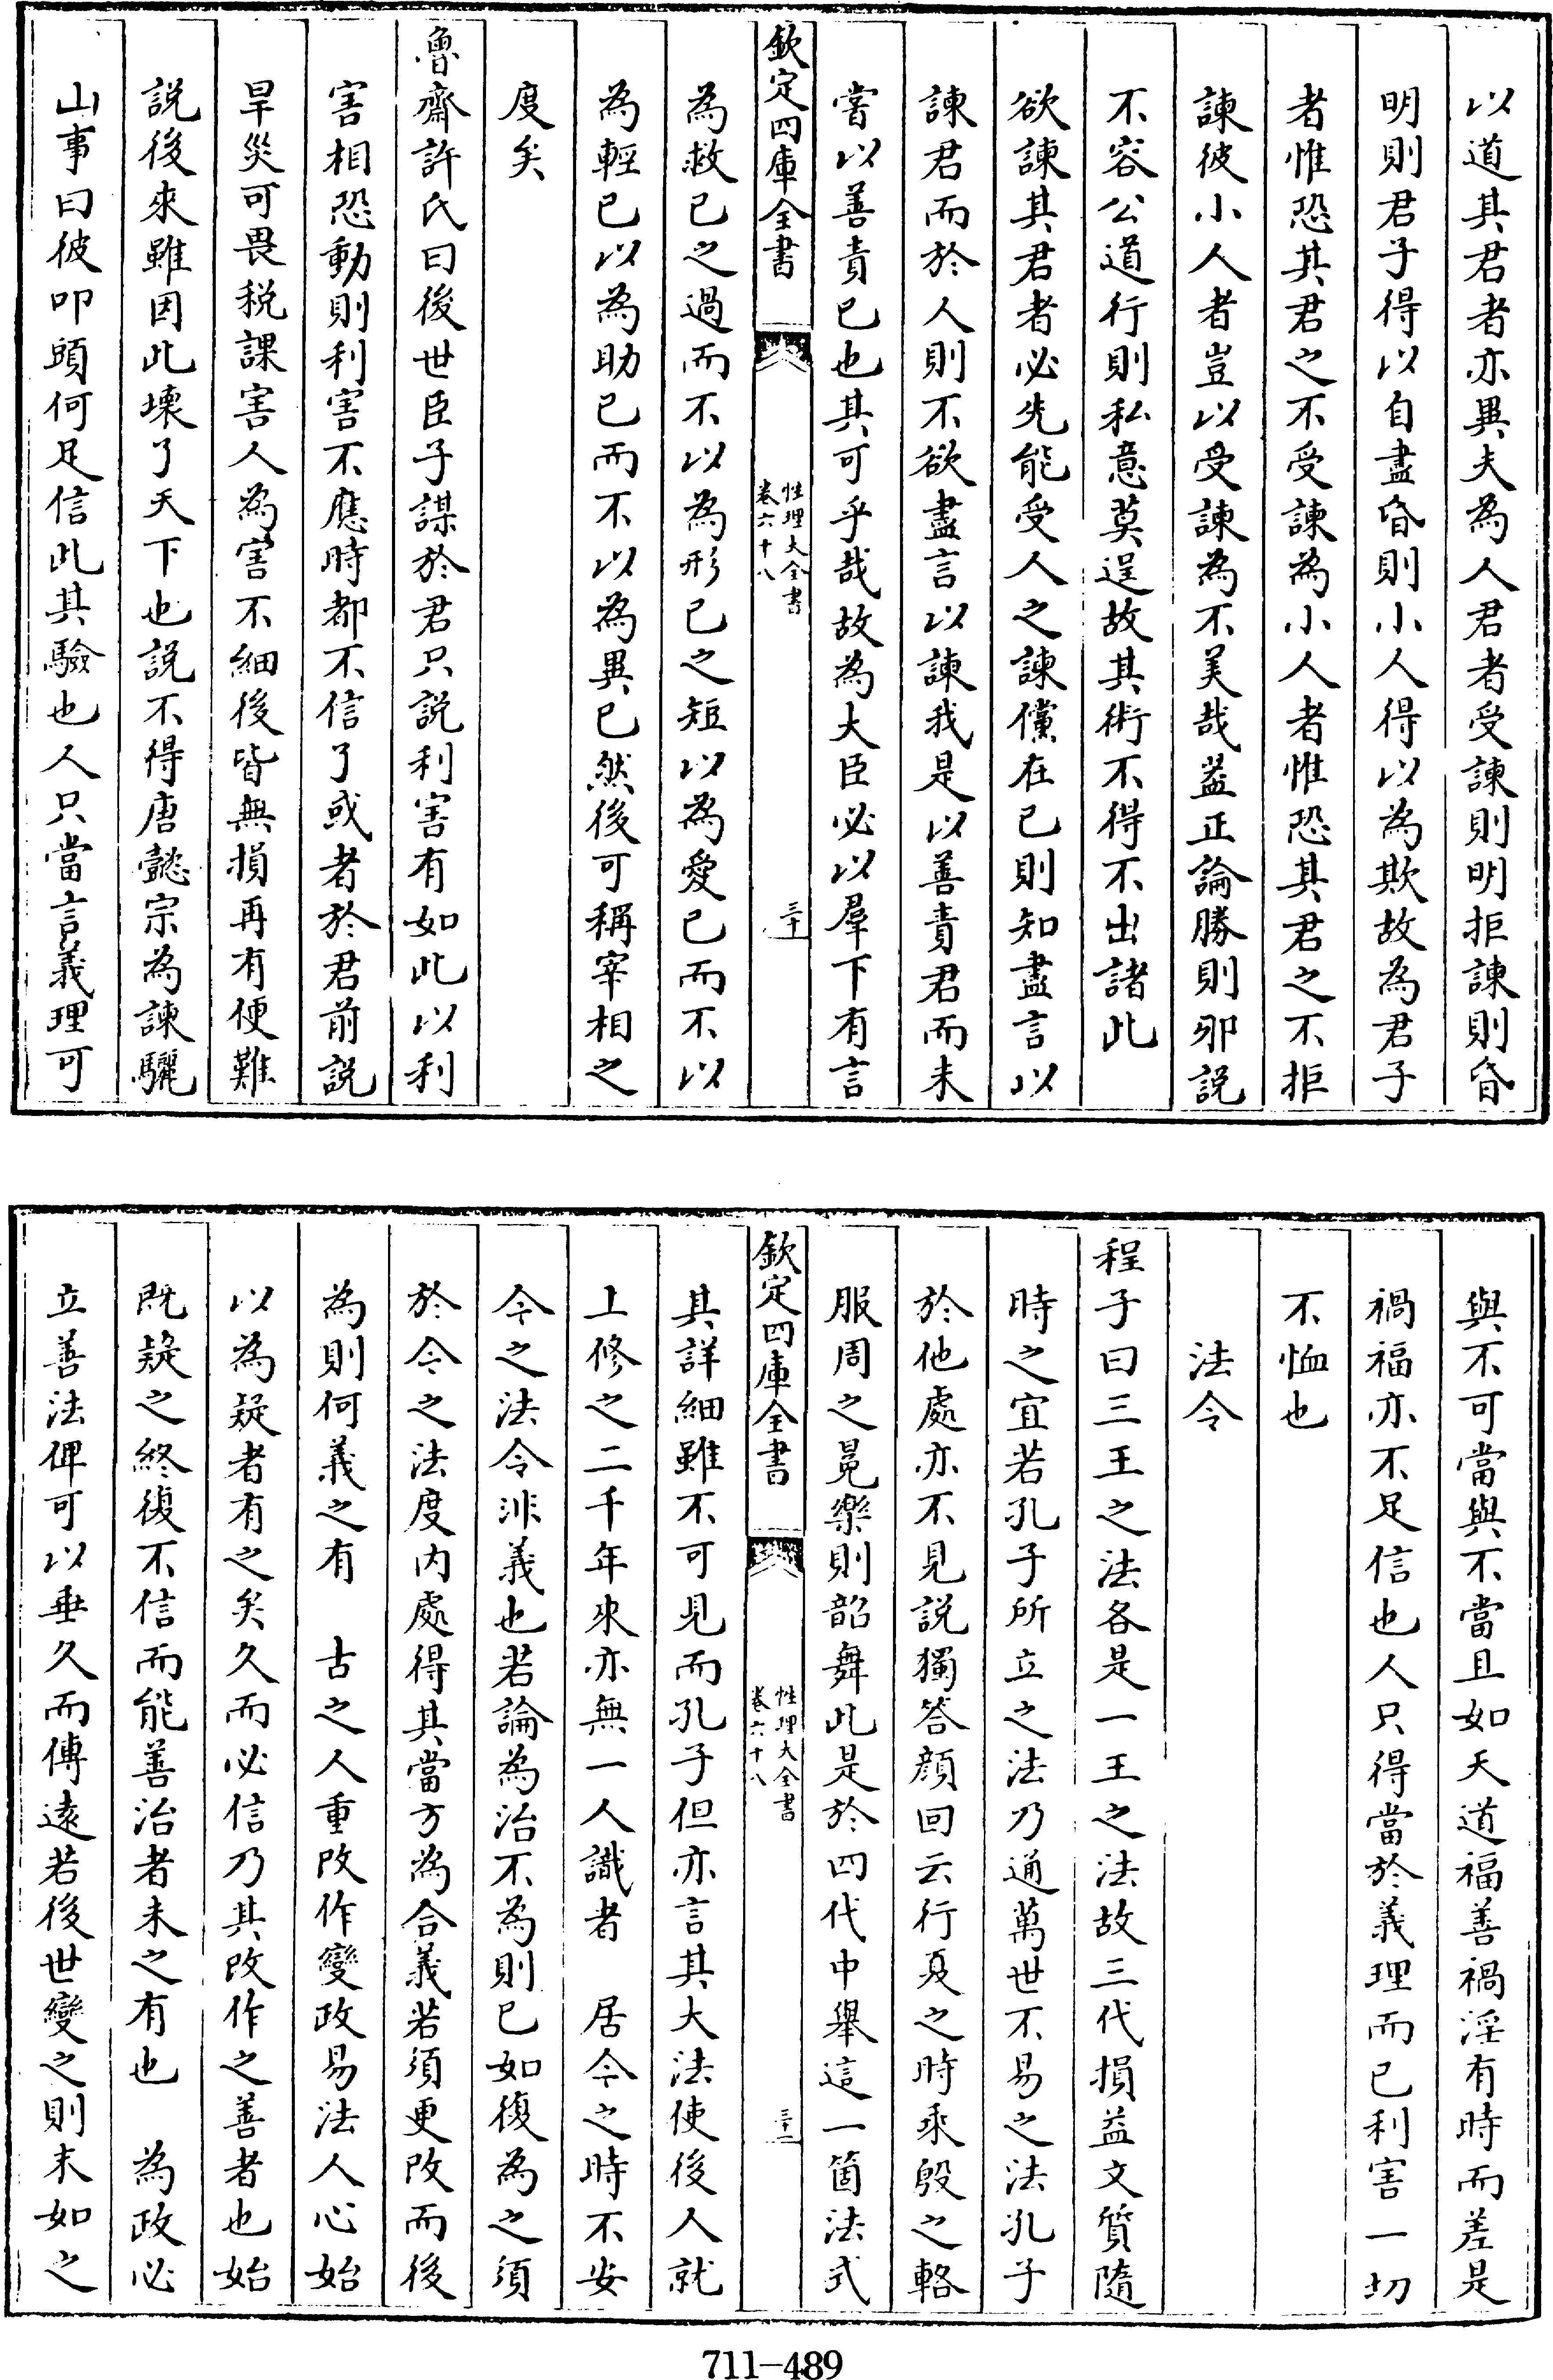 以道其君者亦異夫為人君者受諫則明拒諫則昏
明則君子得以自盡昏則小人得以為欺故為君子
者惟恐其君之不受諫為小人者惟恐其君之不拒
諫彼小人者豈以受諫為不美哉葢正論勝則邪説
不容公道行則私意莫逞故其術不得不出諸此
欲諫其君者必先能受人之諫儻在已則知盡言以
諫君而於人則不欲盡言以諫我是以善責君而未
嘗以善責已也其可乎哉故為大臣必以羣下有言
欽定四庫全書
性理大全書
卷六十八
三十
為救已之過而不以為形已之短以為愛已而不以
為輕已以為助已而不以為異已然後可稱宰相之
度矣
魯齋許氏曰後世臣子謀於君只説利害有如此以利
害相恐動則利害不應時都不信了或者於君前説
旱災可畏税課害人為害不細後皆無損再有便難
説後來雖因此壞了天下也説不得唐懿宗為諫驪
山事曰彼叩頭何足信此其驗也人只當言義理可
與不可當與不當且如天道福善禍淫有時而差是
禍福亦不足信也人只得當於義理而已利害一切
不恤也
法令
程子曰三王之法各是一王之法故三代損益文質隨
時之宜若孔子所立之法乃通萬世不易之法孔子
於他處亦不見説獨答顔回云行夏之時乘殷之輅
服周之冕樂則韶舞此是於四代中舉這一箇法式
欽定四庫全書
性理大全書
卷六十八
三十一
其詳細雖不可見而孔子但亦言其大法使後人就
上修之二千年來亦無一人識者　居今之時不安
今之法令非義也若論為治不為則已如復為之須
於今之法度内處得其當方為合義若須更改而後
為則何義之有　古之人重改作變政易法人心始
以為疑者有之矣久而必信乃其改作之善者也始
既疑之終復不信而能善治者未之有也　為政必
立善法俾可以垂久而傳遠若後世變之則末如之
711-489